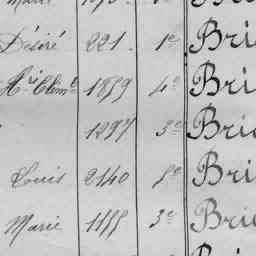 Désiré 221. 1e Bri
Hri Clemt 1859 4e Bri
1297 3e Bri
Louis 2140 8e Bri
Marie 1155 3e Bri